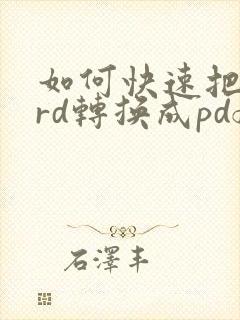 如何快速把
rd轉換成pd
石澤丰